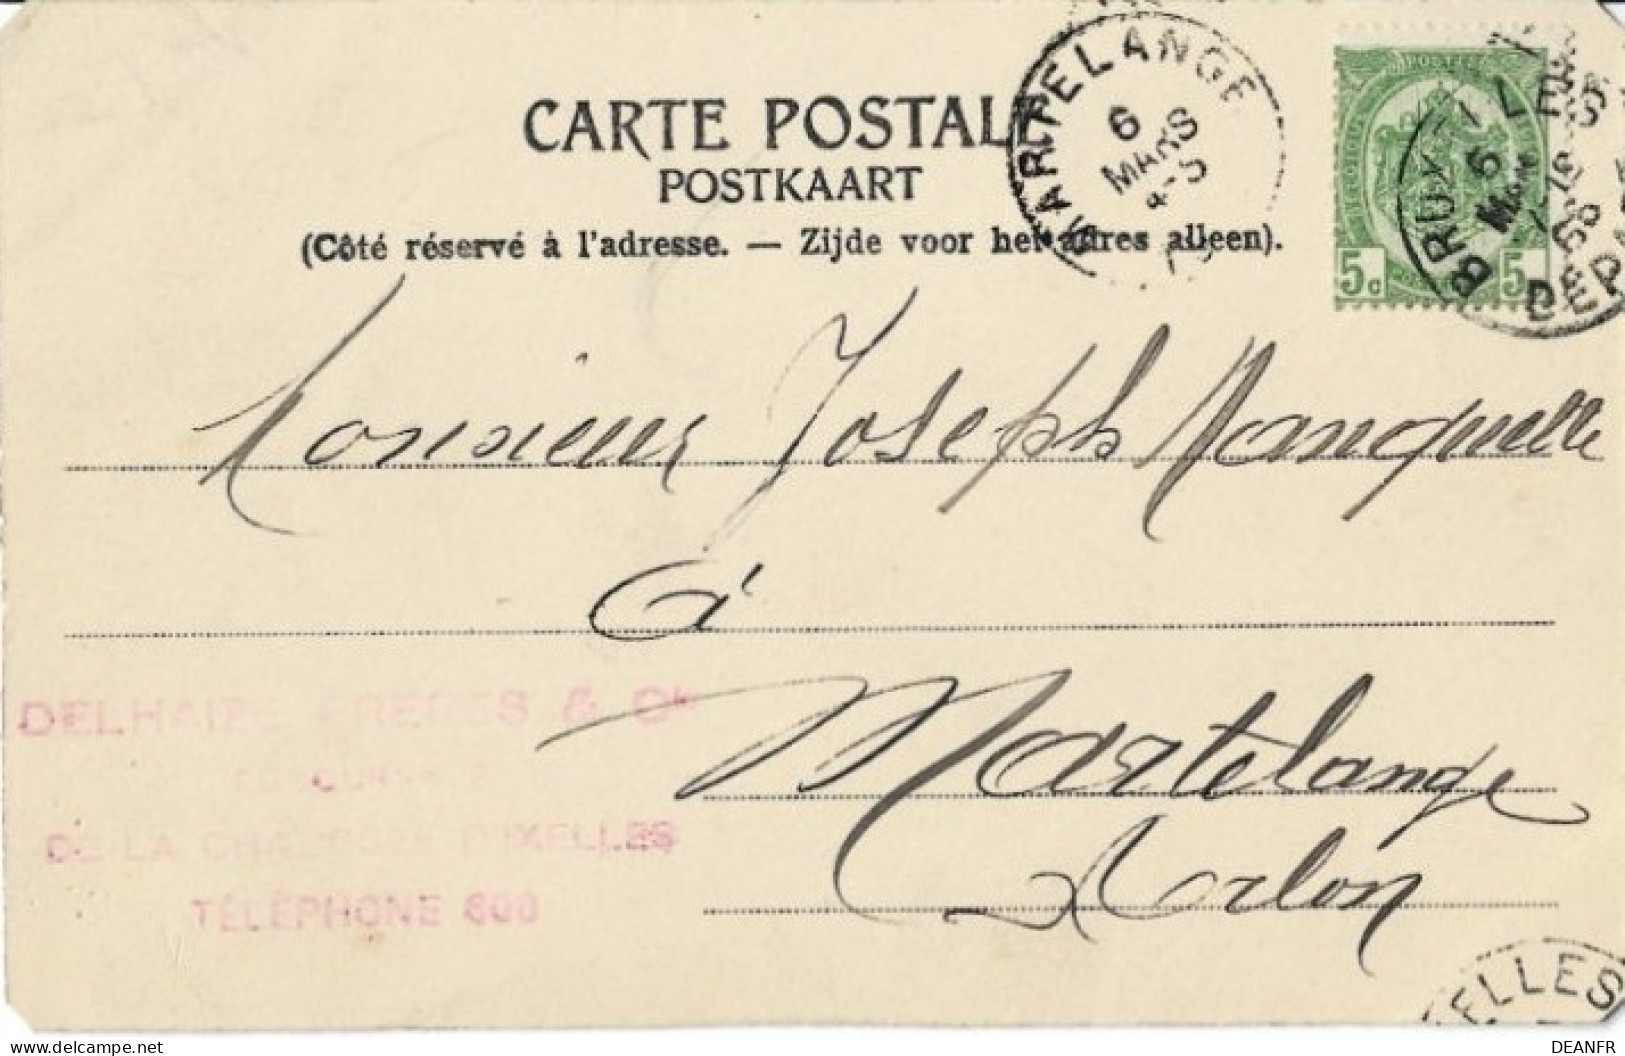 CARTE POSTALE
POSTKAART
(Côté réservé à l'adresse. — Zijde voor het adres alleen).
MARTELANGE
6
MARS
4-5
POSTES
5c 5c
BRUXELLES
6
MARS
DEPART
Monsieur Joseph Manquelle
à
Martelange
Arlon
DELHAIZE FRERES & Cie
DE LA CHAUSSÉE D'IXELLES
TÉLÉPHONE 600
ELLES
delcampe.net
DEANFR